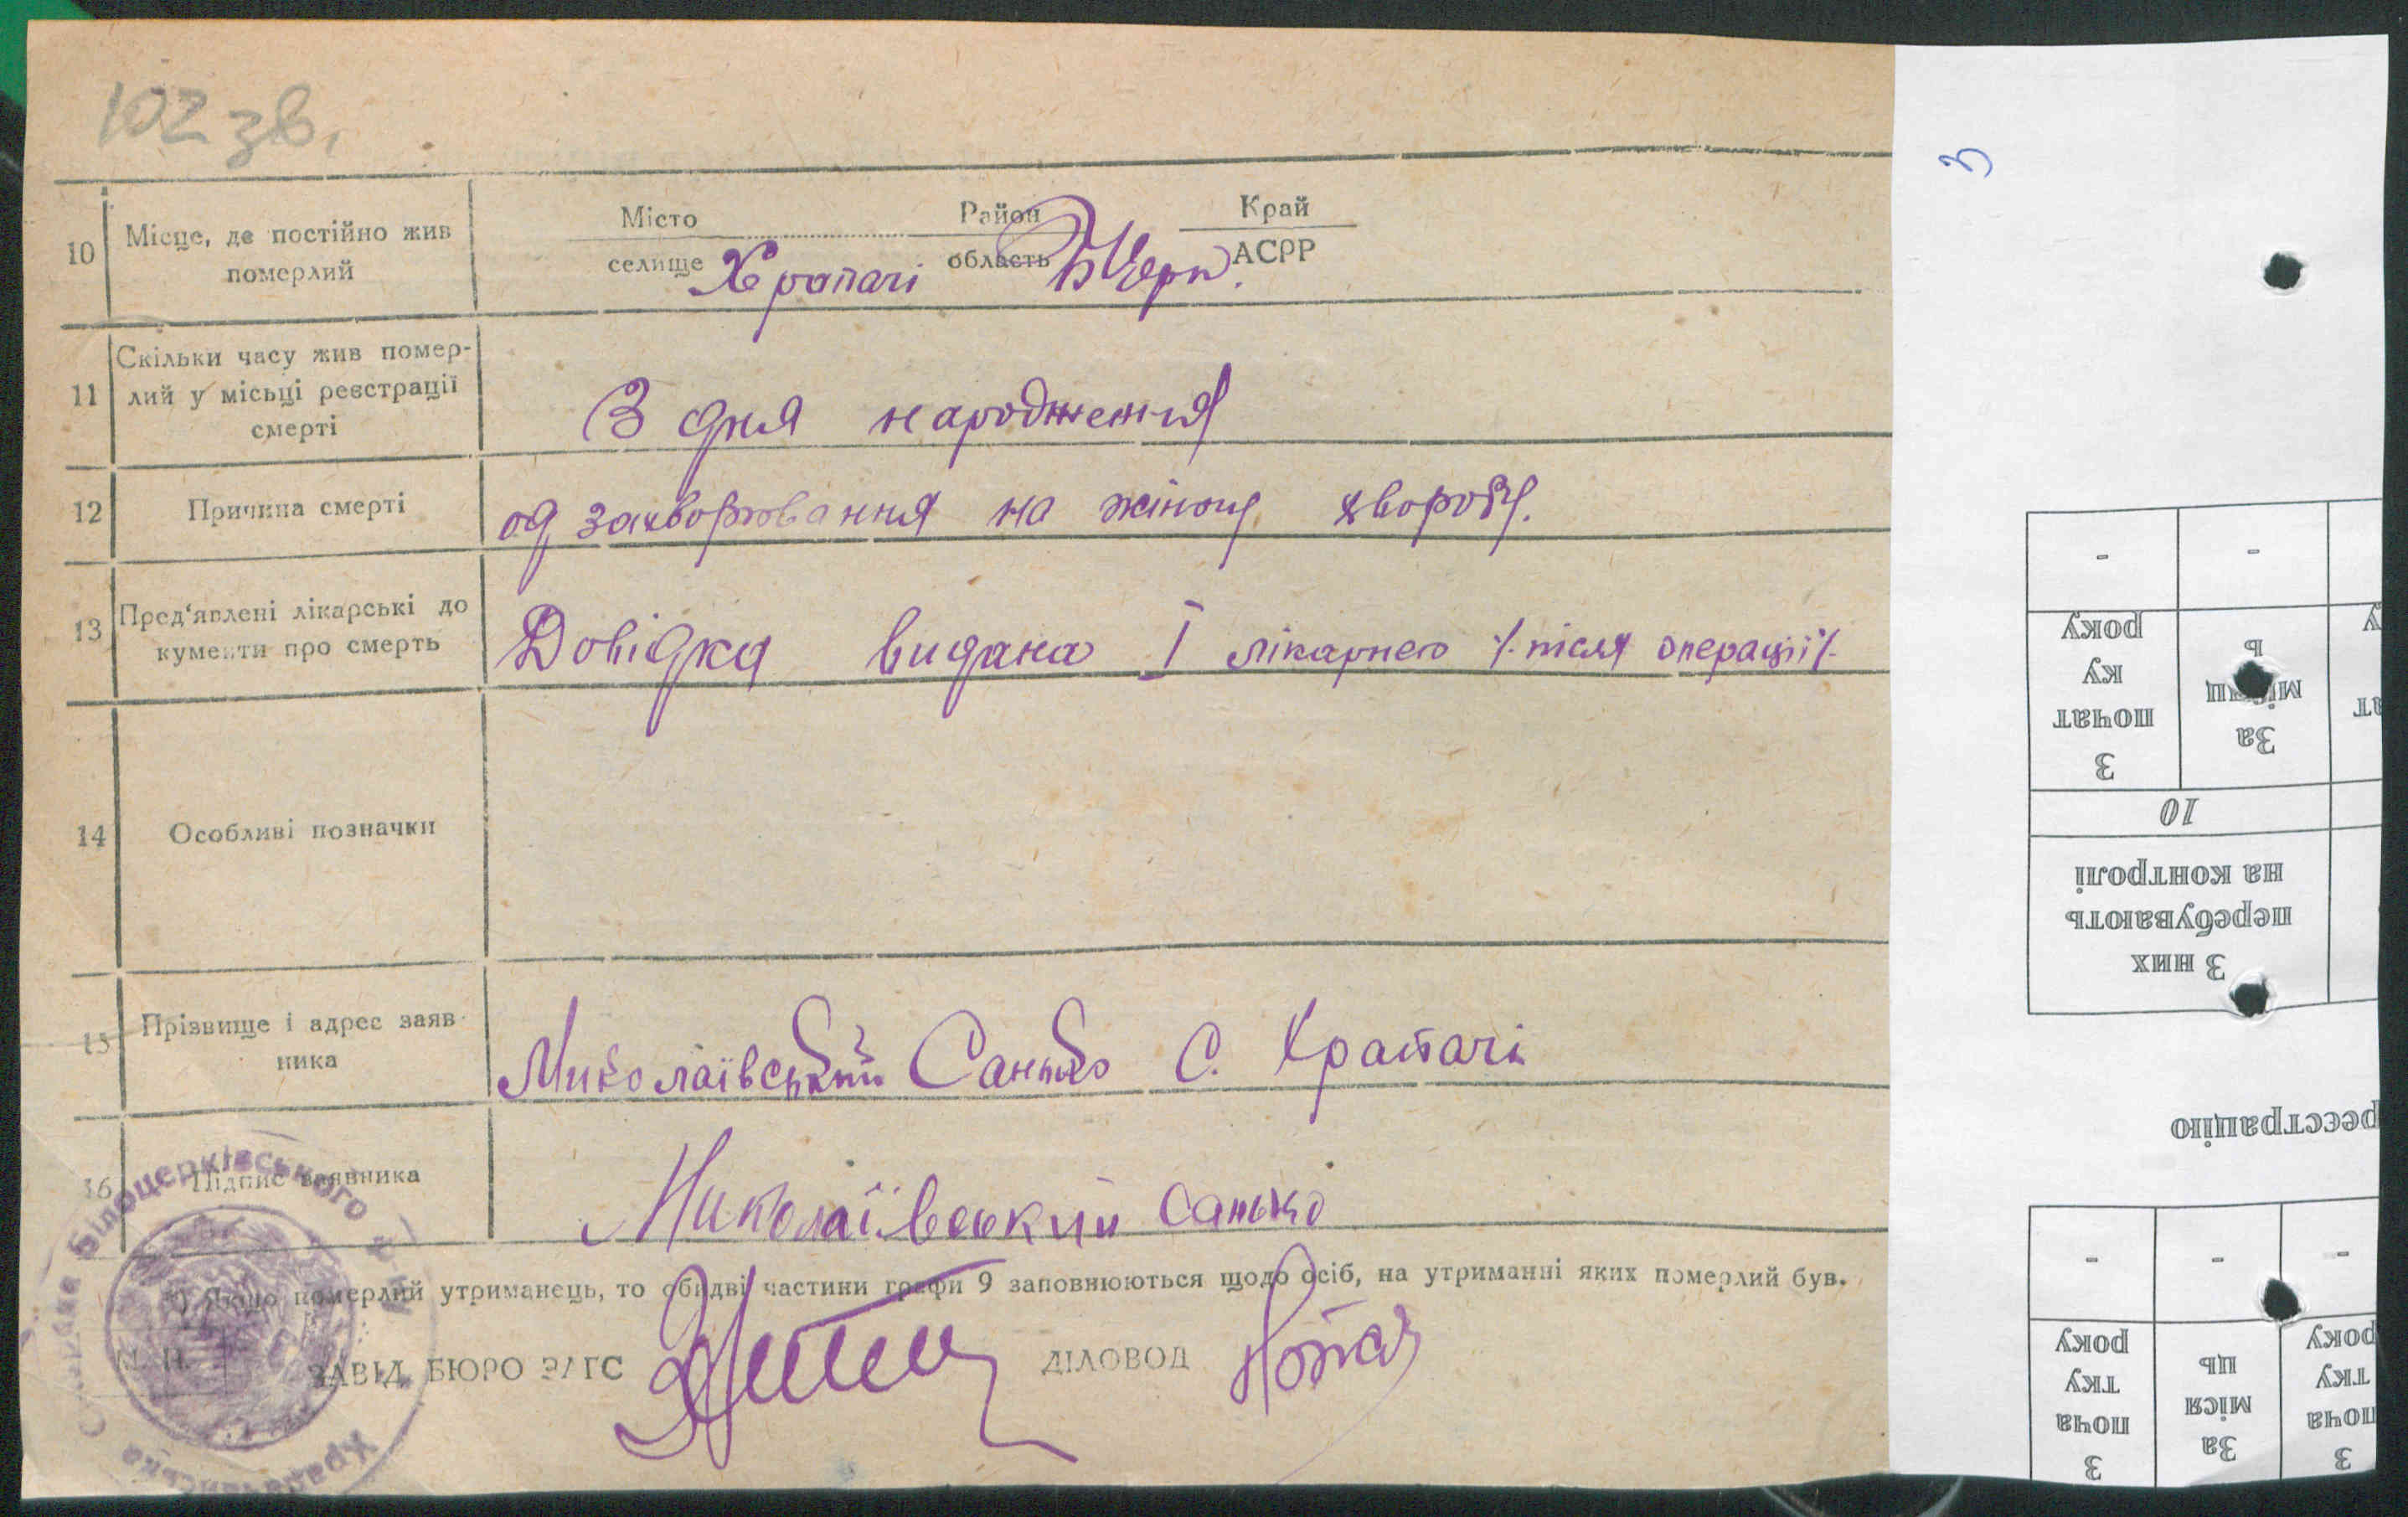 102 зв.
Місто Район Край
10 Місце, де постійно жив
померлий
селище Храпачі область БЦерк. АСРР
11 Скільки часу жив помер-
лий у місьці реєстрації
смерті
З дня народження
12 Причина смерті од захворювання на жіночу хворобу.
13 Пред‘явлені лікарські до
кументи про смерть
Довідка видана I лікарнею /. після операції /.
14 Особливі позначки
15 Прізвище і адрес заяв-
ника
Миколаївський Санько С. Храпачі
16 Підпис заявника
Миколаївський Санько
*) Якщо померлий утриманець, то обидві частини графи 9 заповнюються щодо осіб, на утриманні яких померлий був.
М. П.
ЗАВІД. БЮРО ЗАГС ДІЛОВОД
Білоцерківського р-ну
Храпачанська Сільрада
3
-
-
року
ку
почат
З
ь
місяц
За
10
на контролі
перебувають
З них
реєстрацію
-
-
-
року
тку
поча
З
ць
міся
За
року
тку
поча
З